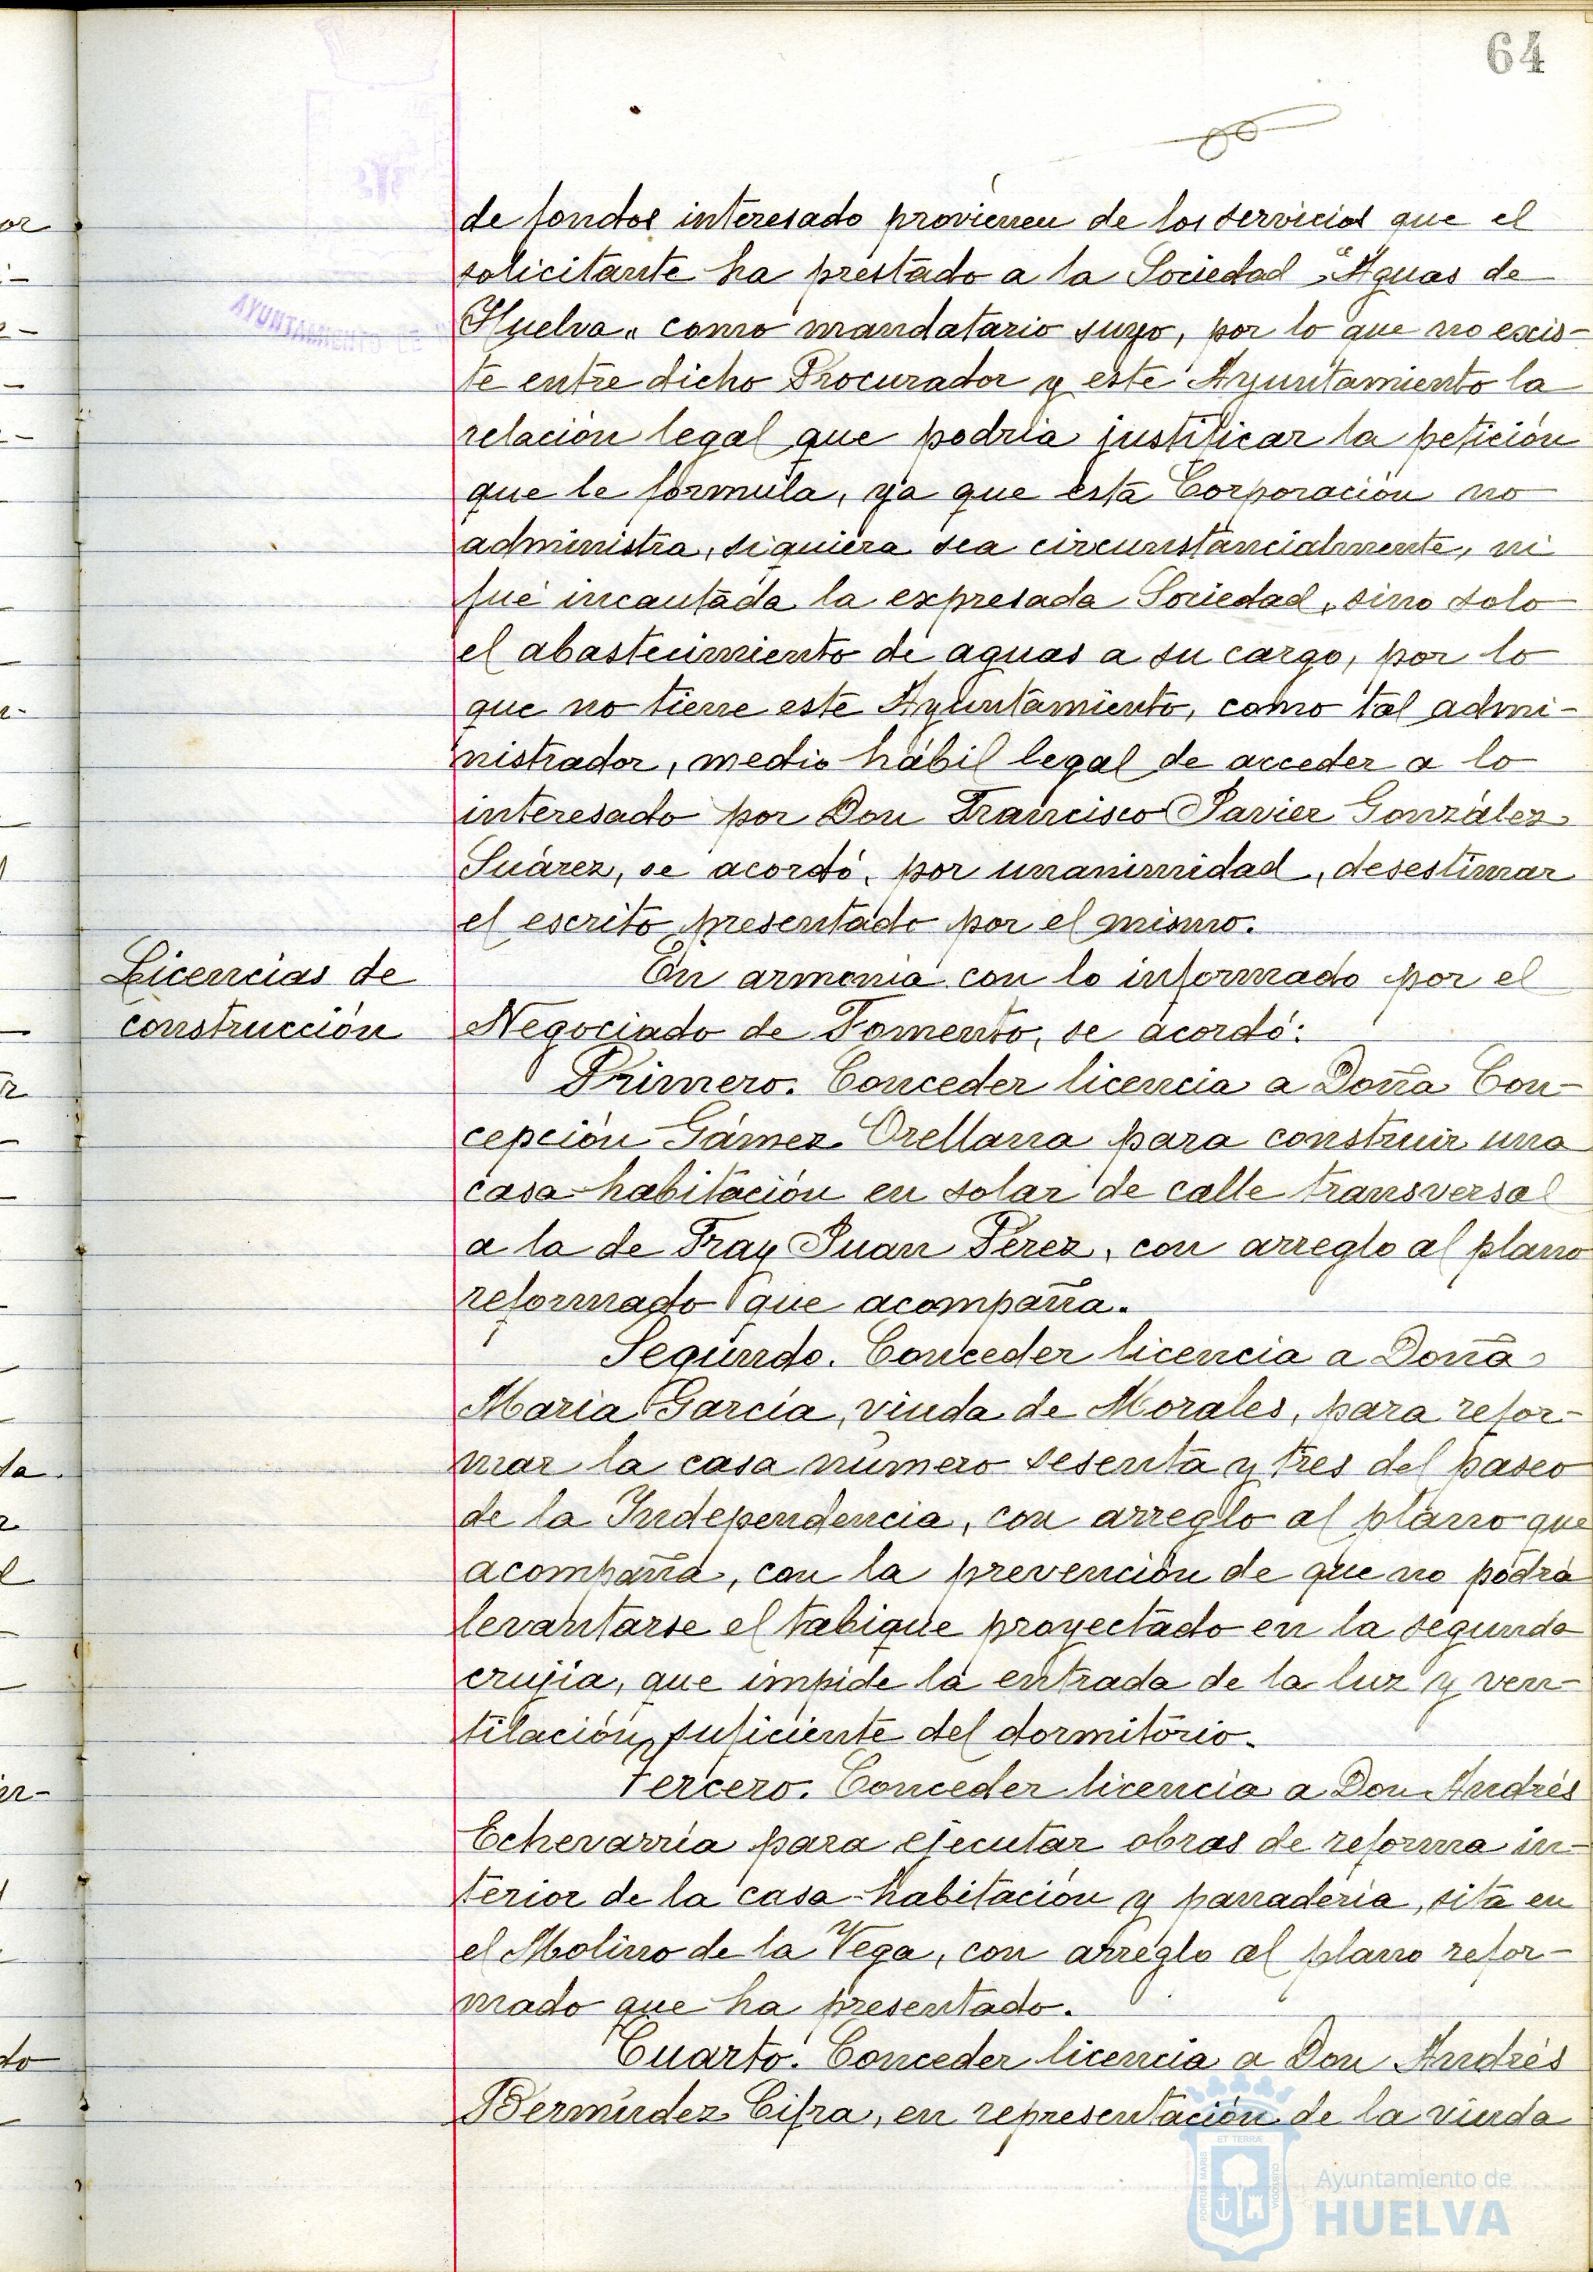 64
de fondos interesado provienen de los servicios que el
solicitante ha prestado a la Sociedad "Aguas de
Huelva" como mandatario suyo, por lo que no exis-
te entre dicho Procurador y este Ayuntamiento la
relación legal que podría justificar la petición
que le formula, ya que esta Corporación no
administra, siquiera sea circunstancialmente, ni
fué incautada la expresada Sociedad, sino solo
el abastecimiento de aguas a su cargo, por lo
que no tiene este Ayuntamiento, como tal admi-
nistrador, medio hábil legal de acceder a lo
interesado por Don Francisco Javier González
Suárez, se acordó, por unanimidad, desestimar
el escrito presentado por el mismo.
Licencias de
construcción
En armonía con lo informado por el
Negociado de Fomento, se acordó:
Primero. Conceder licencia a Doña Con-
cepción Gámez Orellana para construir una
casa-habitación en solar de calle transversal
a la de Fray Juan Pérez, con arreglo al plano
reformado que acompaña.
Segundo. Conceder licencia a Doña
María García, viuda de Morales, para refor-
mar la casa número sesenta y tres del paseo
de la Independencia, con arreglo al plano que
acompaña, con la prevención de que no podrá
levantarse el tabique proyectado en la segunda
crujía, que impide la entrada de la luz y ven-
tilación suficiente del dormitorio.
Tercero. Conceder licencia a Don Andrés
Echevarría para ejecutar obras de reforma in-
terior de la casa-habitación y panadería, sita en
el Molino de la Vega, con arreglo al plano refor-
mado que ha presentado.
Cuarto. Conceder licencia a Don Andrés
Bermúdez Cifra, en representación de la viuda
PORTUS MARIS ET TERRÆ CUSTODIA
Ayuntamiento de
HUELVA